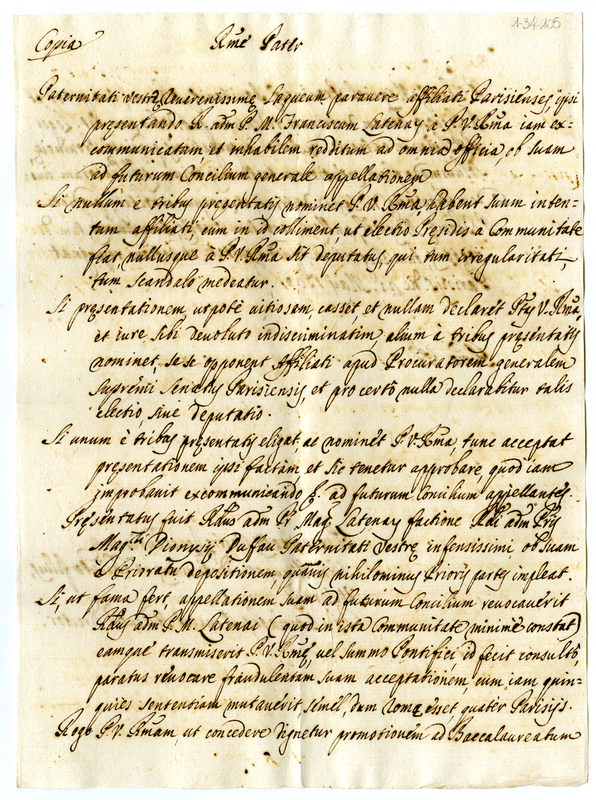 1-34-105
Copia Rme Pater
Paternitati Vestrę Reverenissimę Laqueum paravere affiliati Parisienses, ipsi
pręsentando R. adm P. M. Franciscum Latenay à P. V. Rma iam ex-
communicatam, et inhabilem redditum ad omnia officia, ob suam
ad futurum Concilium generale appellationem
Si nullum e tribus pręsentatis nominet P. V. Rma, habent suum inten-
tum affiliati, cum in id colliment, ut electio Pręsidis à Communitate
fiat, nullusque à P. V. Rma sit deputatus, qui tum irregularitati,
tum scandalo medeatur.
Si pręsentationem, utpote vitiosam, casset, et nullam declaret Ptas V. Rma,
et iure sibi devoluto indiscriminatim, alium à tribus pręsentatis
nominet, se se opponent Affiliati apud Procuratorem generalem
Supremi Senatus Parisiensis, et pro certo nulla declarabitur talis
electio sive deputatio.
Si unum è tribus pręsentatis eligat, ac nominet P. V. Rma, tunc acceptat
pręsentationem ipsi factam, et sic tenetur approbare, quod iam
improbavit excommunicando ad futurum Concilium appellantes.
Pręsentatus fuit Rdus adm Pr Mag. Latenay factione Rdi adm Pris
Magistri Dionysii Duffau Paternitati Vestrę infensissimi, ob suam
è Prioratu depositionem, quamvis nihilominus Prioris partes impleat.
Si, ut fama fert, appellationem suam ad futurum Concilium revocaverit
Rdus adm P. M. Latenai (quod in ista Communitate minimè constat)
eamque transmiserit P. V. Rmę, vel summo Pontifici, id fecit consultò,
paratus revocare fraudulentam suam acceptationem, cum iam quin-
quies sententiam mutaverit semèl, dum Romę esset quater Parisiis.
Rogo P. V. Rmam, ut concedere dignetur promotionem ad Baccalaureatum